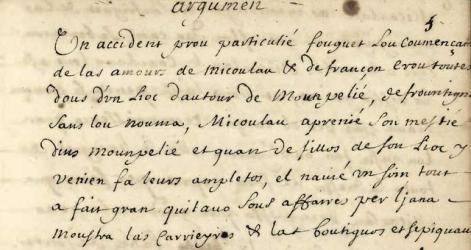 argumen
5
Un accident prou particulié fouguet Lou Coumençam
de las amours de Micoulau & de françon Erou toutes
dous d'vn Lioc dautour de Mounpelié, de frountign
Sans lou nouma, Micoulau aprenié son mestié
dins Mounpelié et quan de fillos de son Lioc y
venien fa leurs ampletos, el n'avié un soin tout
a fait gran quitavo sous affaires per ljana
Moustra las Carrieyros & las boutiguos et sepiquau